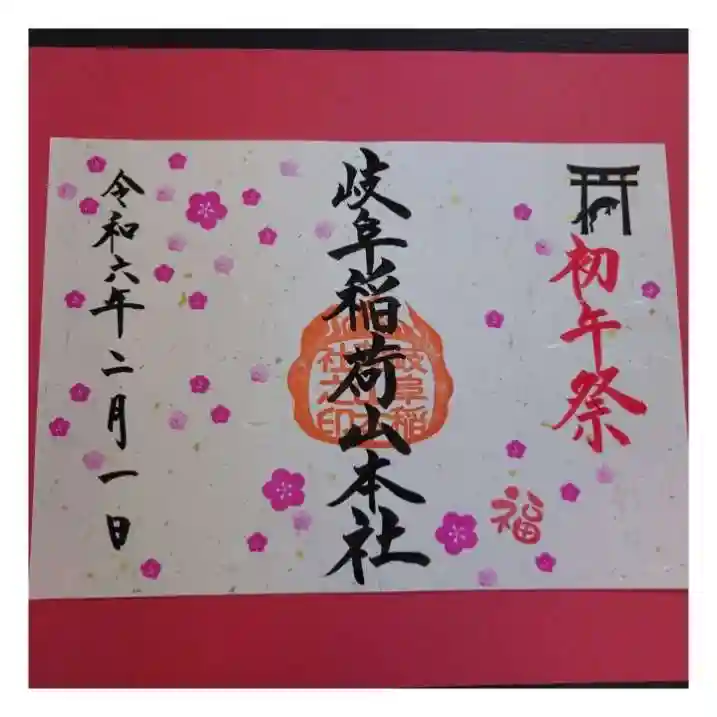 初午祭
福
岐阜稲荷山本社
岐阜稲
社之印
令和六年二月一日